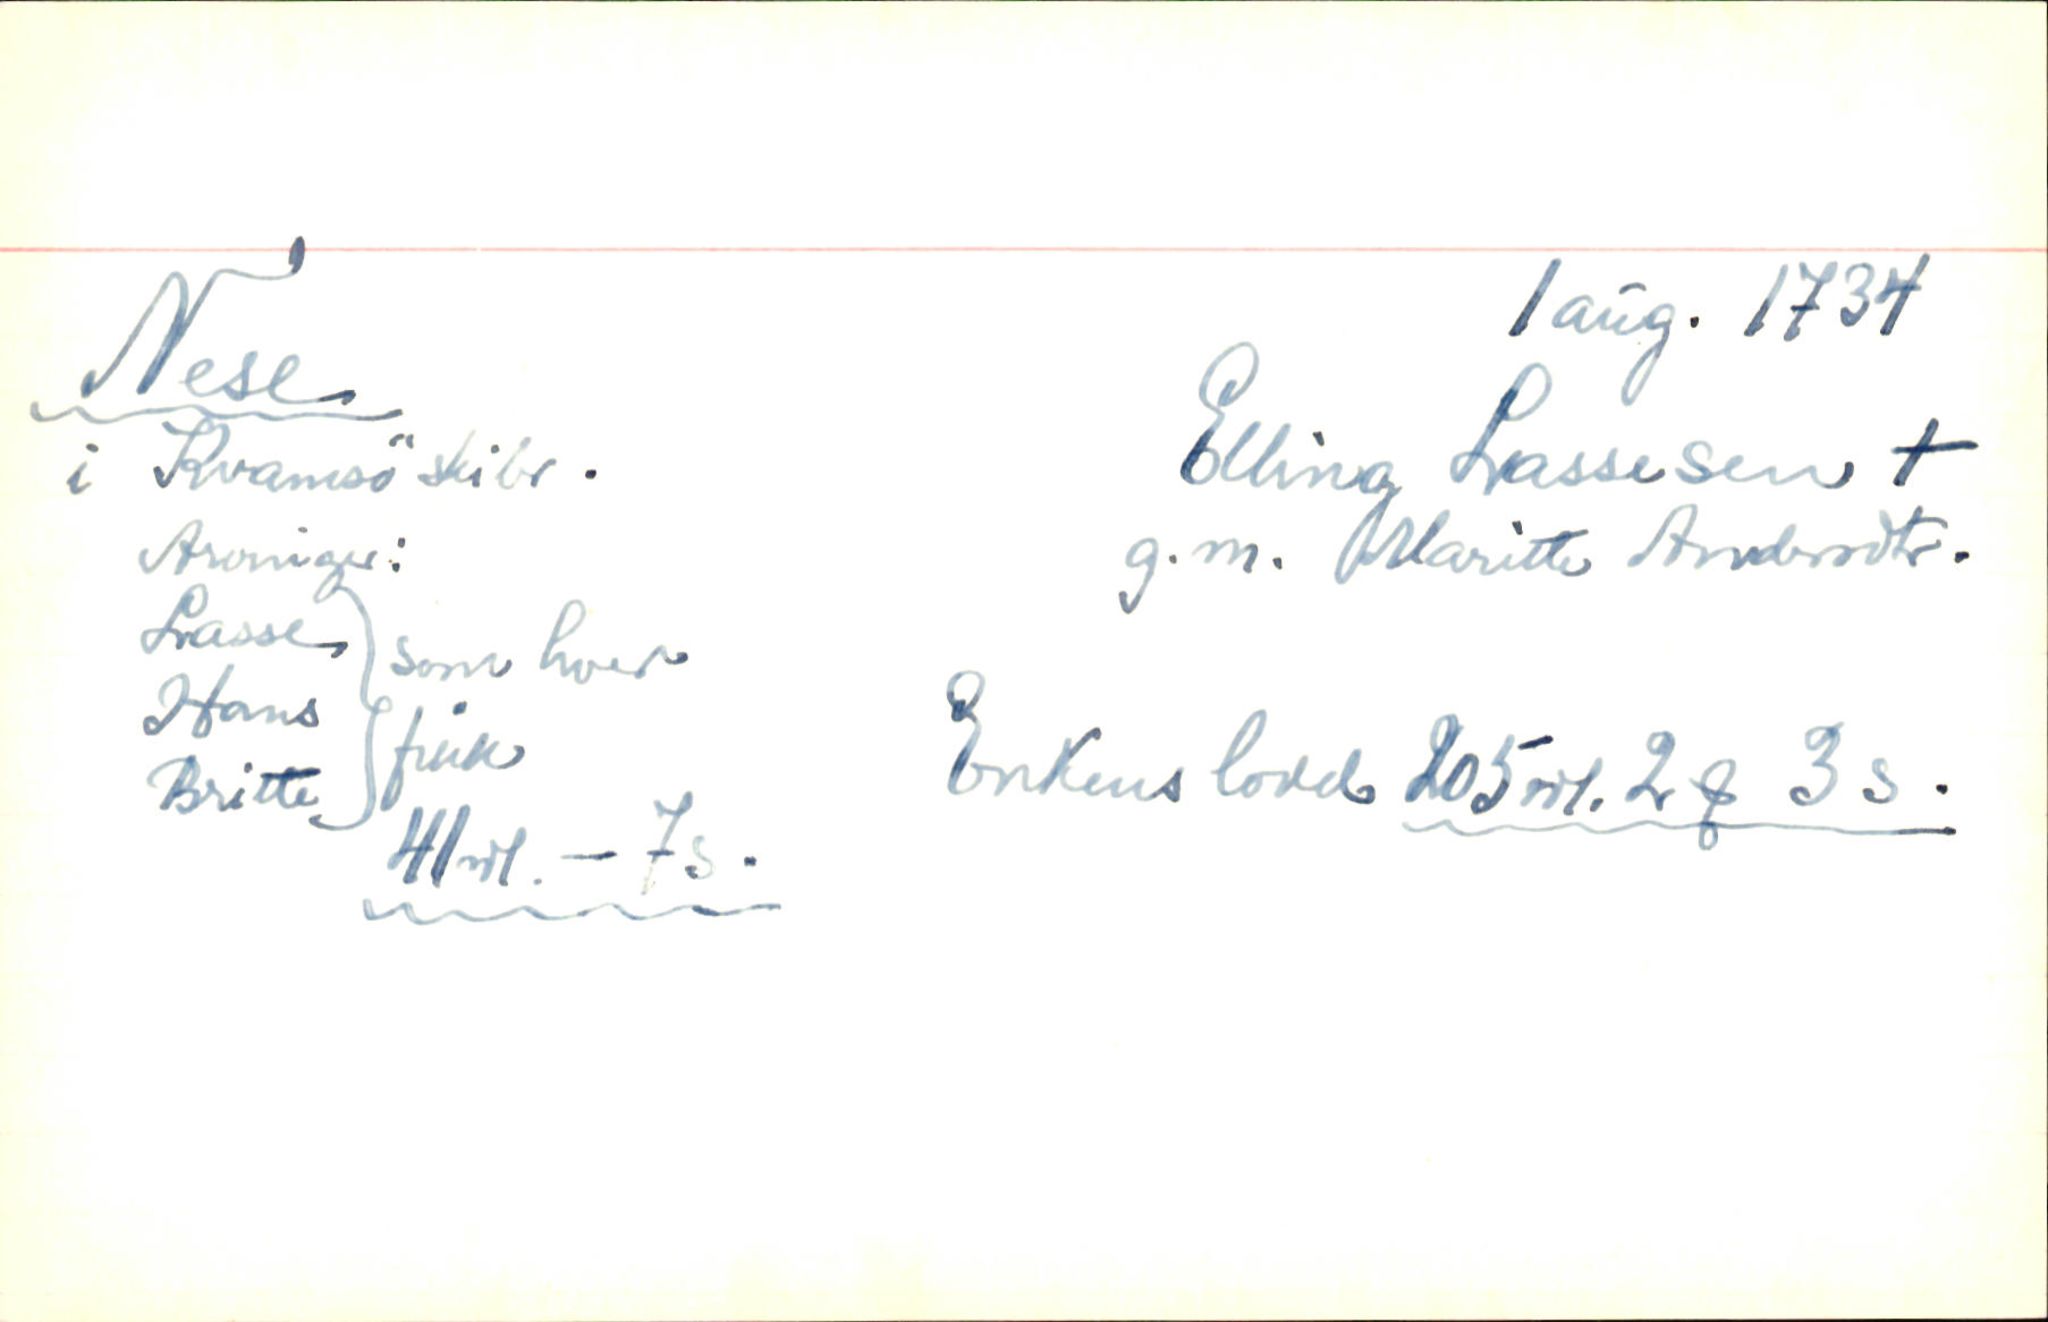 1 aug. 1734
Nese
i Kvamsö skibr.
Elling Lassesen †
g.m. Maritte Andersdtr.
Arvinger:
Lasse
Hans
Britte
som hver
fikk
41 rdl. – 7 s.
Enkens lodd 205 rdl. 2 ꝗ 3 s.